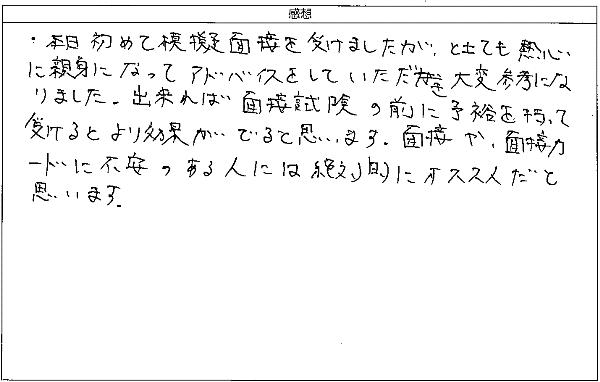 感想
・本日初めて模擬面接を受けましたが、とても熱心
に親身になってアドバイスをしていただき大変参考にな
りました。出来れば面接試験の前に予裕を持って
受けるとより効果がでると思います。面接や、面接カ
ードに不安のある人には絶対的にオススメだと
思います。